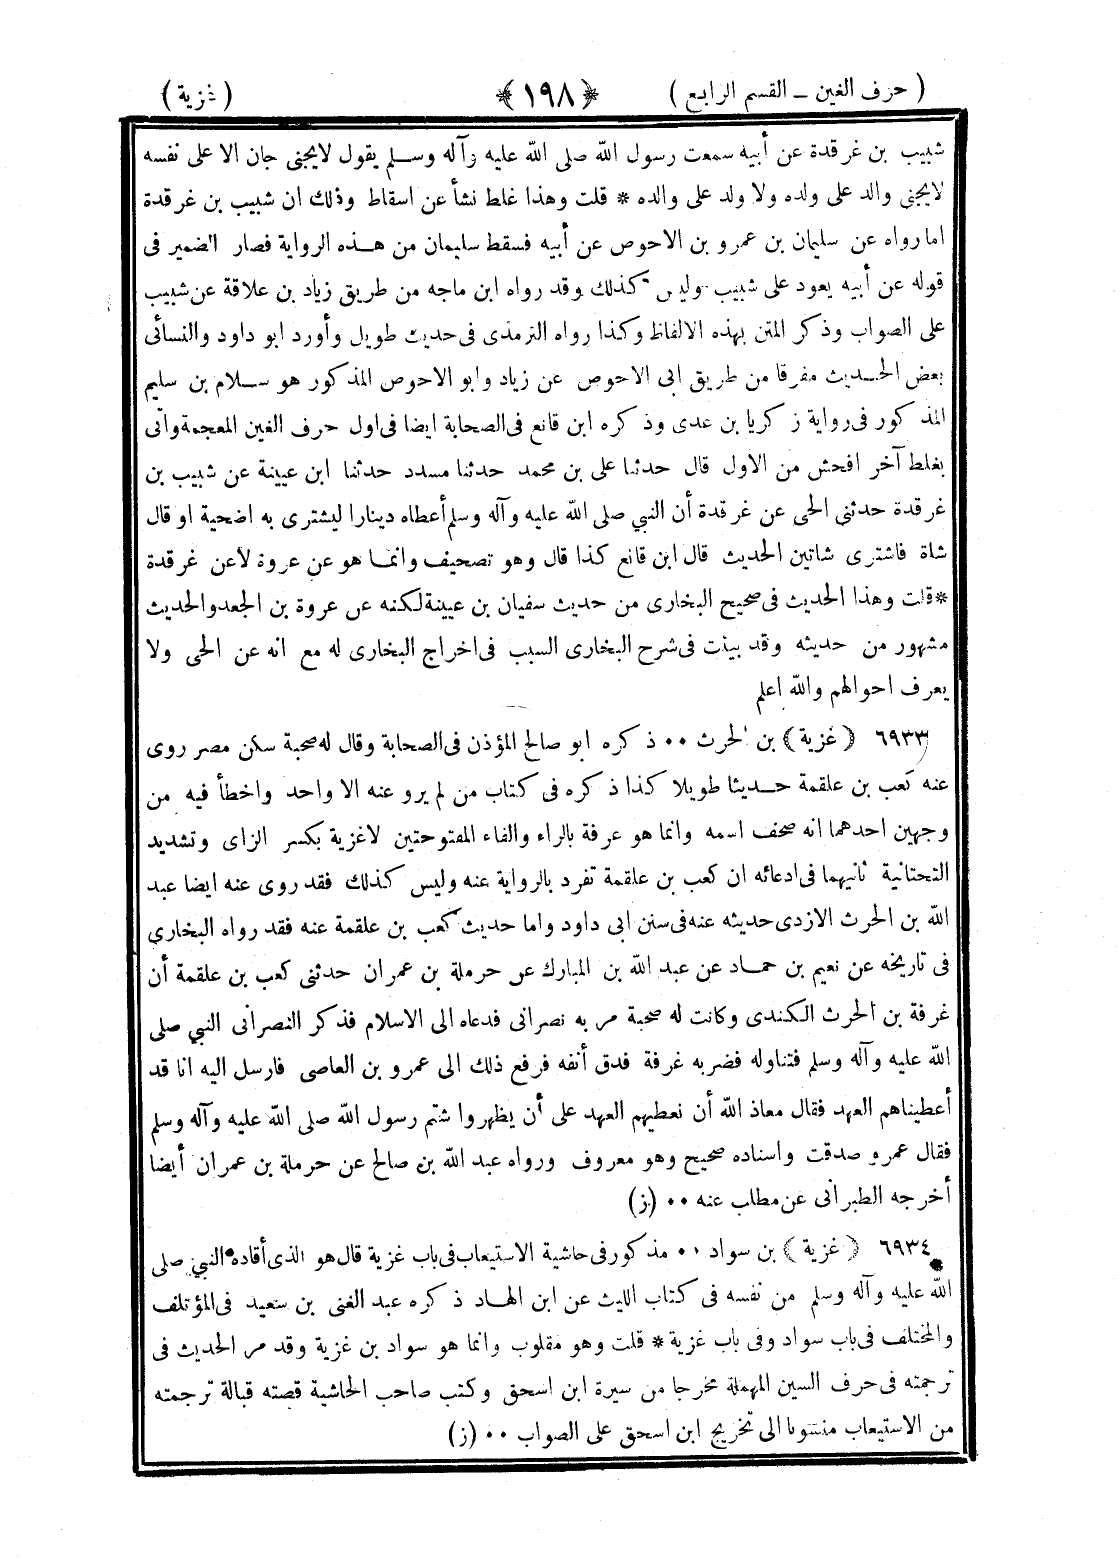 ( حرف الغين ــ القسم الرابع ) ﴿ ١٩٨ ﴾ ( غزية )
شبيب بن غرقدة عن أبيه سمعت رسول الله صلى الله عليه وآله وسلم يقول لايجنى جان الا على نفسه
لايجنى والد على ولده ولا ولد على والده * قلت وهذا غلط نشأ عن اسقاط وذلك ان شبيب بن غرقدة
اما رواه عن سليمان بن عمرو بن الاحوص عن أبيه فسقط سليمان من هذه الرواية فصار الضمير فى
قوله عن أبيه يعود على شبيب وليس كذلك وقد رواه ابن ماجه من طريق زياد بن علاقة عن شبيب
على الصواب وذكر المتن بهذه الالفاظ وكذا رواه الترمذى فى حديث طويل وأورد ابو داود والنسائى
بعض الحديث مفرقا من طريق ابى الاحوص عن زياد وابو الاحوص المذكور هو سلام بن سليم
المذكور فى رواية زكريا بن عدى وذكره ابن قانع فى الصحابة ايضا فى اول حرف الغين المعجمة وأتى
بغلط آخر افحش من الاول قال حدثنا على بن محمد حدثنا مسدد حدثنا ابن عيينة عن شبيب بن
غرقدة حدثنى الحى عن غرقدة أن النبي صلى الله عليه وآله وسلم أعطاه دينارا ليشترى به اضحية او قال
شاة فاشترى شاتين الحديث قال ابن قانع كذا قال وهو تصحيف وانما هو عن عروة لاعن غرقدة
* قلت وهذا الحديث فى صحيح البخارى من حديث سفيان بن عيينة لكنه عن عروة بن الجعد والحديث
مشهور من حديثه وقد بينت فى شرح البخارى السبب فى اخراج البخارى له مع انه عن الحى ولا
يعرف احوالهم والله اعلم
٦٩٣٣ ﴿ غزية ﴾ بن الحرث ٠٠ ذكره ابو صالح المؤذن فى الصحابة وقال له صحبة سكن مصر روى
عنه كعب بن علقمة حديثا طويلا كذا ذكره فى كتاب من لم يرو عنه الا واحد واخطأ فيه من
وجهين احدهما انه صحف اسمه وانما هو عرفة بالراء والفاء المفتوحتين لاغزية بكسر الزاى وتشديد
التحتانية ثانيهما فى ادعائه ان كعب بن علقمة تفرد بالرواية عنه وليس كذلك فقد روى عنه ايضا عبد
الله بن الحرث الازدى حديثه عنه فى سنن ابى داود واما حديث كعب بن علقمة عنه فقد رواه البخاري
فى تاريخه عن نعيم بن حماد عن عبد الله بن المبارك عن حرملة بن عمران حدثنى كعب بن علقمة أن
غرفة بن الحرث الكندى وكانت له صحبة مر به نصرانى فدعاه الى الاسلام فذكر النصرانى النبي صلى
الله عليه وآله وسلم فتناوله فضربه غرفة فدق أنفه فرفع ذلك الى عمرو بن العاصى فارسل اليه انا قد
أعطيناهم العهد فقال معاذ الله أن نعطيهم العهد على أن يظهروا شتم رسول الله صلى الله عليه وآله وسلم
فقال عمرو صدقت واسناده صحيح وهو معروف ورواه عبد الله بن صالح عن حرملة بن عمران أيضا
أخرجه الطبرانى عن مطلب عنه ٠٠ (ز)
٦٩٣٤ ﴿ غزية ﴾ بن سواد ٠٠ مذكور فى حاشية الاستيعاب فى باب غزية قال هو الذى أقاده النبي صلى
الله عليه وآله وسلم من نفسه فى كتاب الليث عن ابن الهاد ذكره عبد الغنى بن سعيد فى المؤتلف
والمختلف فى باب سواد وفى باب غزية * قلت وهو مقلوب وانما هو سواد بن غزية وقد مر الحديث فى
ترجمته فى حرف السين المهملة مخرجا من سيرة ابن اسحق وكتب صاحب الحاشية قصته قبالة ترجمته
من الاستيعاب منسوبا الى تخريج ابن اسحق على الصواب ٠٠ (ز)